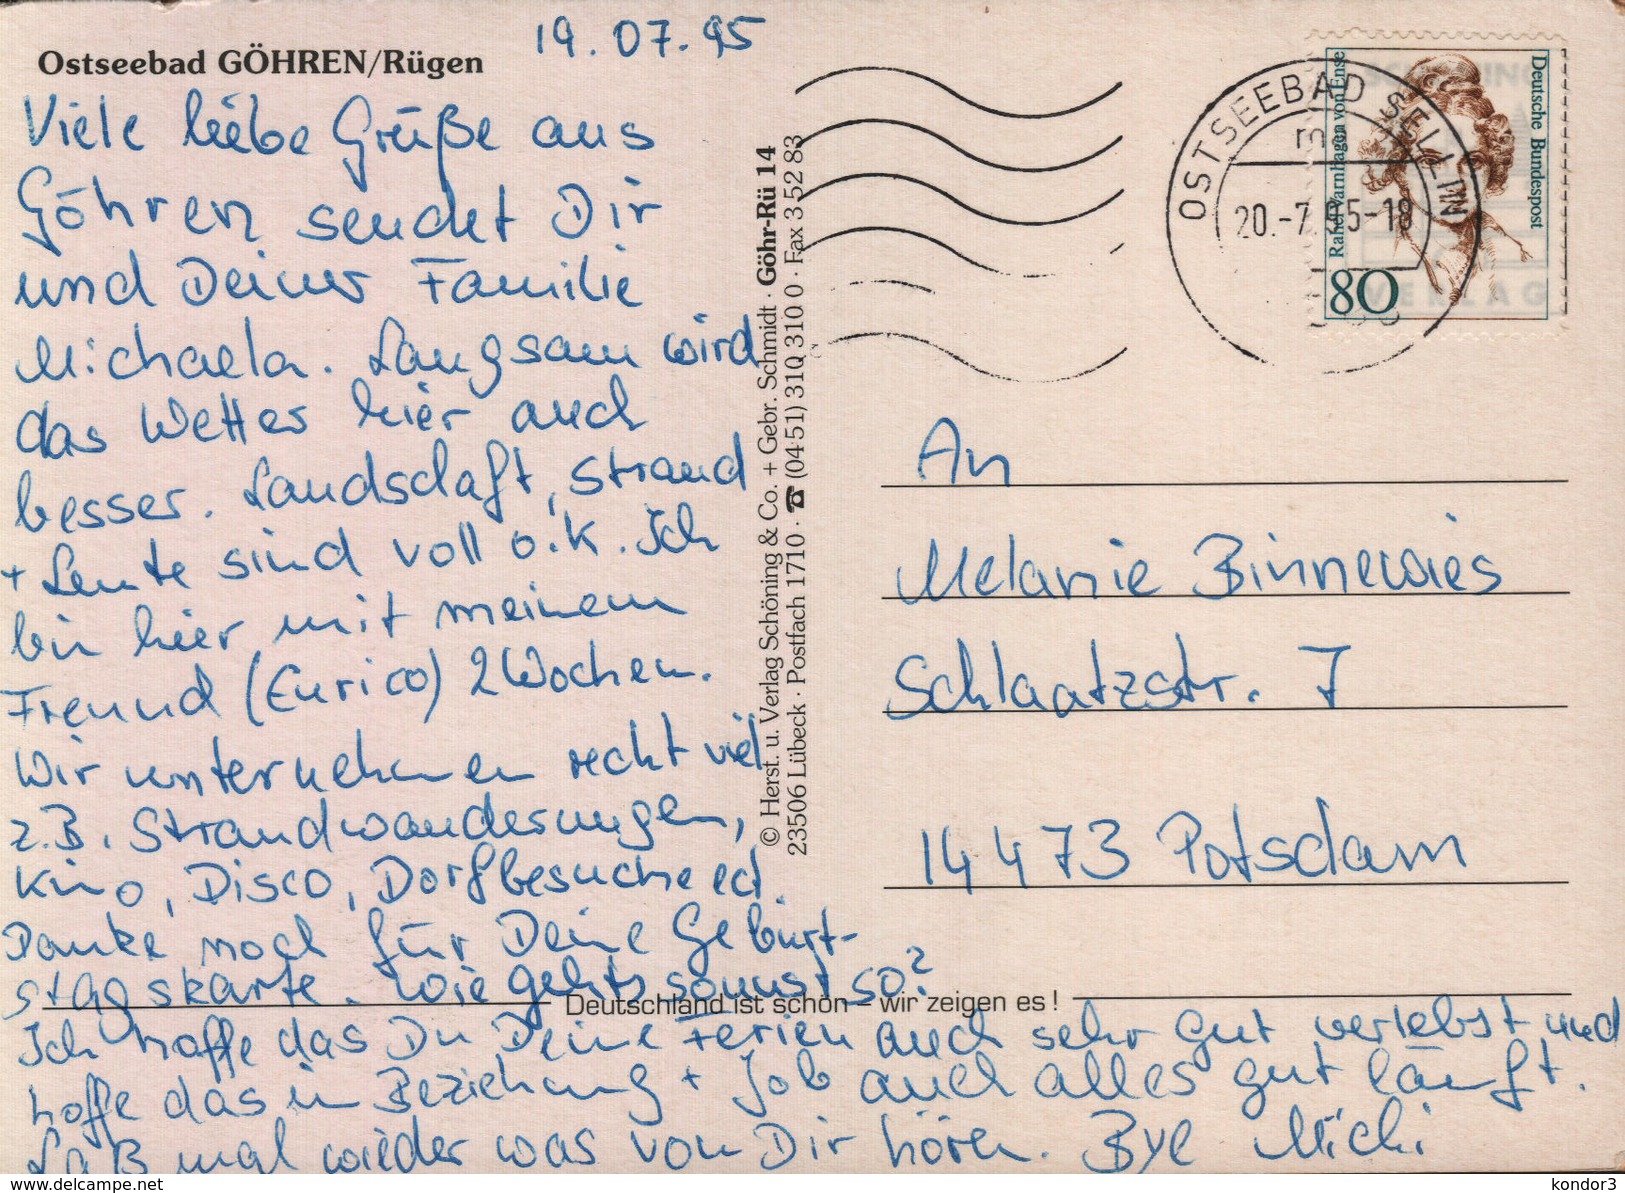 Ostseebad GÖHREN/Rügen
19.07.95
Viele liebe Grüße aus
Göhren sendet Dir
und Deiner Familie
Michaela. Langsam wird
das Wetter hier auch
besser. Landschaft, Strand
+ Leute sind voll o.k. Ich
bin hier mit meinem
Freund (Enrico) 2 Wochen.
Wir unternehmen recht viel
z.B. Strandwanderungen,
Kino, Disco, Dorfbesuche ect.
Danke noch für Deine Geburt-
stagskarte. Wie gehts sonst so?
Ich hoffe das Du Deine Ferien auch sehr gut verlebst und
hoffe das in Beziehung + Job auch alles gut läuft.
Laß mal wieder was von Dir hören. Bye Michi
© Herst. u. Verlag Schöning & Co. + Gebr. Schmidt · Göhr-Rü 14
23506 Lübeck · Postfach 1710 · ☎ (04 51) 310 310 0 · Fax 3 52 83
Deutschland ist schön – wir zeigen es!
OSTSEEBAD SELLIN
20.-7.95-18
Rahel Varnhagen von Ense
Deutsche Bundespost
80
SCHÖNING
VERLAG
An
Melanie Binnewies
Schlaatzstr. 7
14473 Potsdam
www.delcampe.net
kondor3